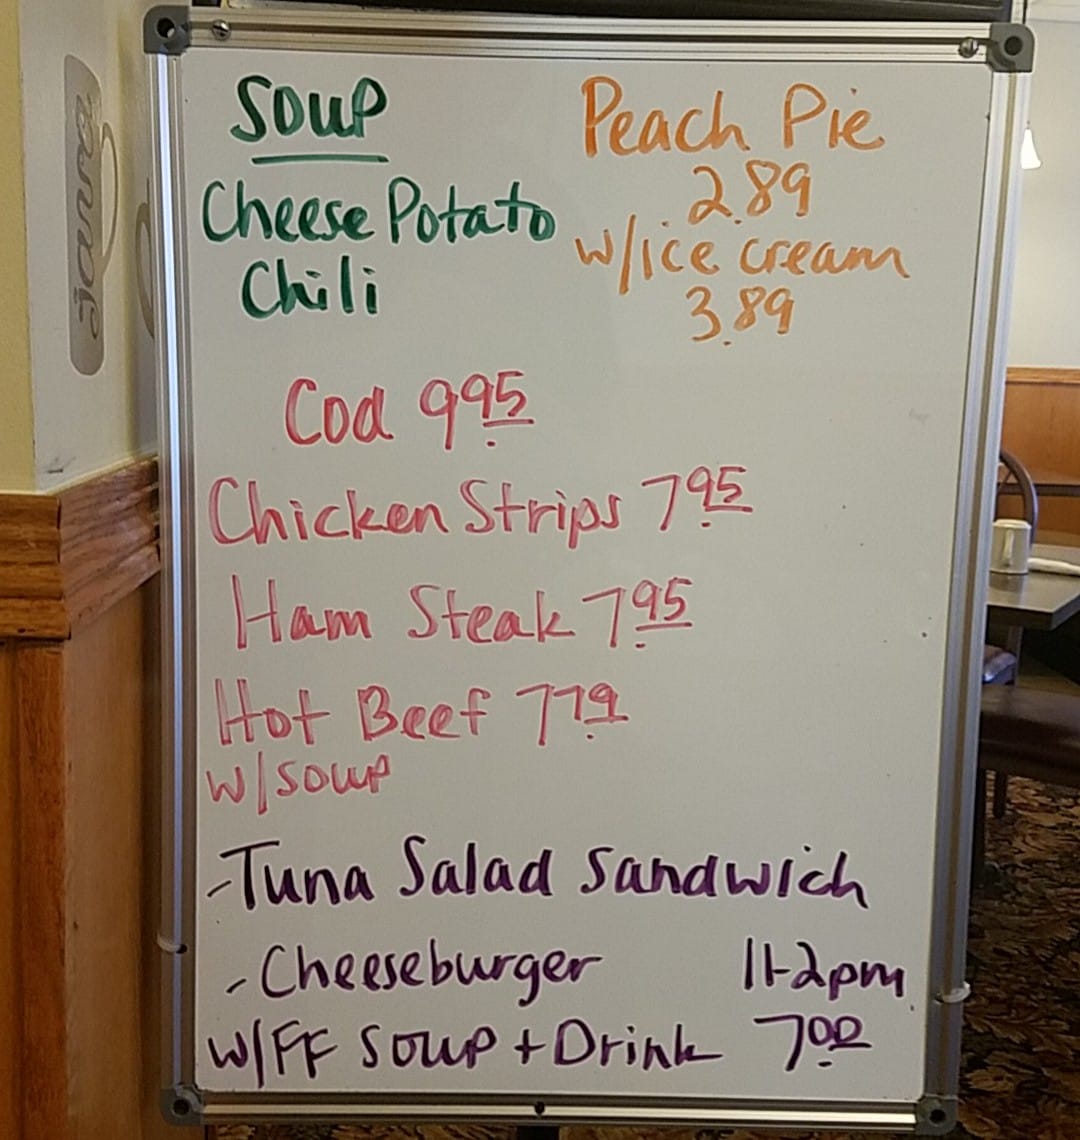 Soup
Cheese Potato
Chili
Peach Pie
2.89
w/ice cream
3.89
Cod 9.95
Chicken Strips 7.95
Ham Steak 7.95
Hot Beef 7.79
w/soup
-Tuna Salad Sandwich
-Cheeseburger 11-2pm
w/FF Soup + Drink 7.00